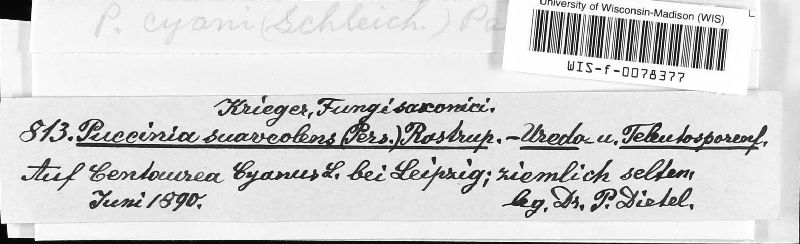 P. cyani (Schleich.) Pa
University of Wisconsin-Madison (WIS)
WIS-f-0078377
Krieger, Fungi saxonici.
813. Puccinia suaveolens (Pers.) Rostrup. – Uredo- u. Teleutosporenf.
Auf Centaurea Cyanus L. bei Leipzig; ziemlich selten.
Juni 1890. leg. Dr. P. Dietel.